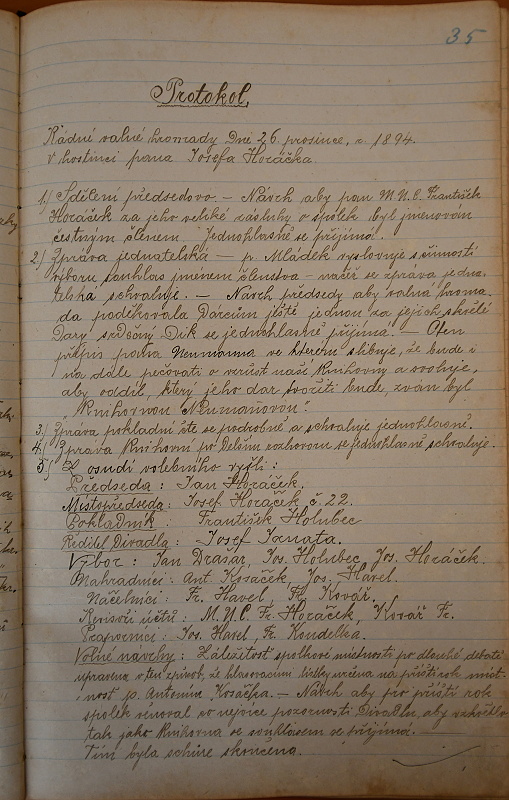 35
Protokol.
Řádné valné hromady Dne 26 prosince, r. 1894.
v hostinci pana Josefa Horáčka
1.) Sdělení předsedovo. — Návrh aby pan M.U.C. František
Horáček za jeho veliké zásluhy o spolek byl jmenován
čestným členem. Jednohlasně se přijímá.
2.) Zpráva jednatelská — p. Mládek vyslovuje s činností
výboru souhlas jménem členstva — načež se zpráva jedna-
telská schvaluje. — Návrh předsedy aby valná hroma-
da poděkovala Dárcům ještě jednou za jejich skvělé
Dary srdečný Dík se jednohlasně přijímá. — Čten
přípis pana Neumanna ve kterém slibuje, že bude i
na dále pečovati o vzrůst naší Knihovny a
aby oddíl, který jeho dar tvořiti bude, zván byl
„Knihovnou Neumanovou“.
3.) Zpráva pokladní čte se podrobně a schvaluje jednohlasně.
4.) Zpráva Knihovní po Delším rozhovoru se jednohlasně schvaluje.
5.) Z osudí volebního vyšli:
Předseda: Jan Horáček.
Místopředseda: Josef Horáček č. 22.
Pokladník: František Holubec
Ředitel Divadla: Josef Janata.
Výbor: Jan Drasar, Jos. Holubec, Jos. Horáček.
Náhradníci: Ant. Kosáček, Jos. Havel.
Náčelníci: Fr. Havel, Fr. Kovář.
Revisoři účtů: M.U.C. Fr. Horáček, Kovář Fr.
Praporníci: Jos. Havel, Fr. Koudelka.
Volné návrhy: Záležitost spolkové místnosti po dlouhé debatě
upravena v ten způsob, že hlasovacími lístky určena na příští rok míst-
nost p. Antonína Kosáčka. — Návrh aby pro příští rok
spolek věnoval co nejvíce pozornosti Divadlu, aby vzkvétlo
tak jako Knihovna se souhlasem se přijímá. —
Tím byla schůze skončena.